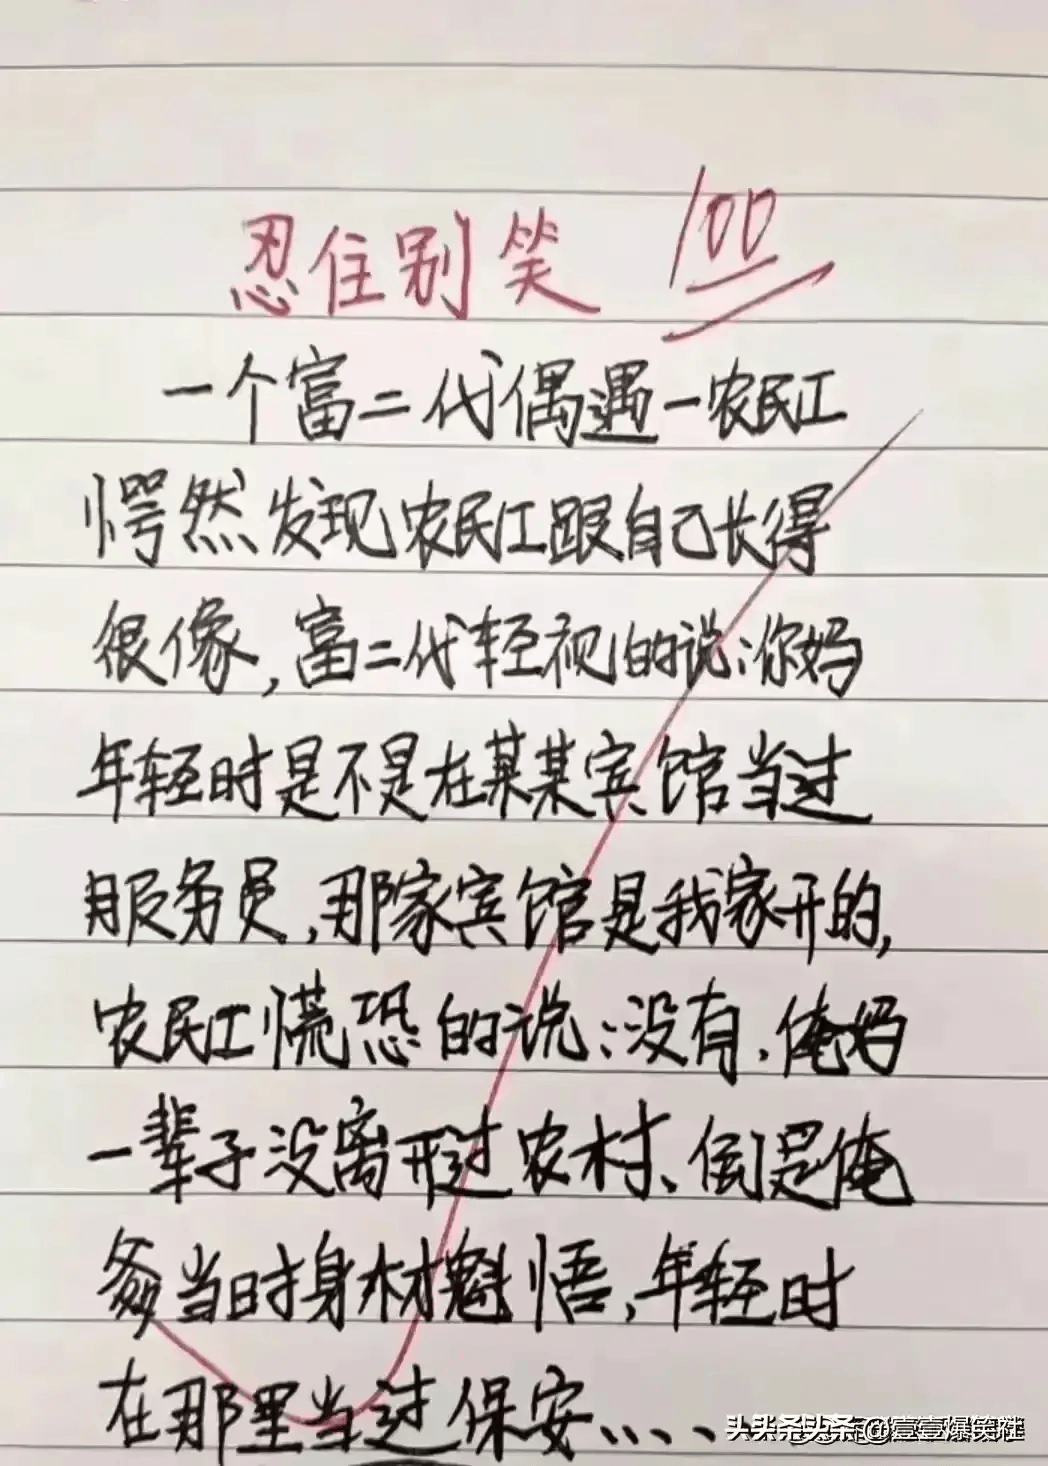 忍住别笑 100
一个富二代偶遇一农民工
愕然发现农民工跟自己长得
很像,富二代轻视的说:你妈
年轻时是不是在某某宾馆当过
服务员,那家宾馆是我家开的,
农民工慌恐的说:没有,俺妈
一辈子没离开过农村、倒是俺
爹当时身材魁悟,年轻时
在那里当过保安、、、、
头条@壹壹爆笑社